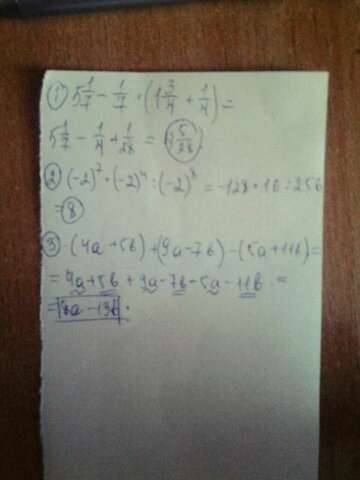 ① 5 1/7 - 1/7 · (1 3/4 + 1/4) =
5 1/7 - 1/4 + 1/28 = 5/28
② (-2)⁷ · (-2)⁴ : (-2)⁸ = -128 · 16 : 256
= 8
③ -(4a + 5b) + (9a - 7b) - (5a + 11b) =
= 4a + 5b + 9a - 7b - 5a - 11b =
= 8a - 13b .